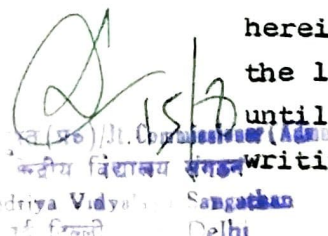 herei
the l
until
writi
15/
(प्र०)/Jt. Commissioner (Admn
केन्द्रीय विद्यालय संगठन
driya Vidya Sangathan
नई दिल्ली Delhi